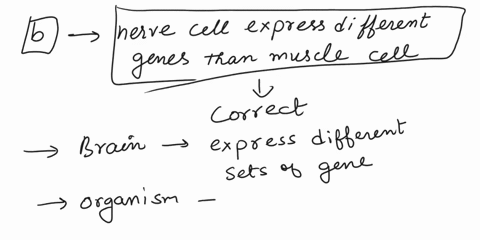 b → nerve cell express different
genes than muscle cell
↓
Correct
→ Brain → express different
sets of gene
→ organism –